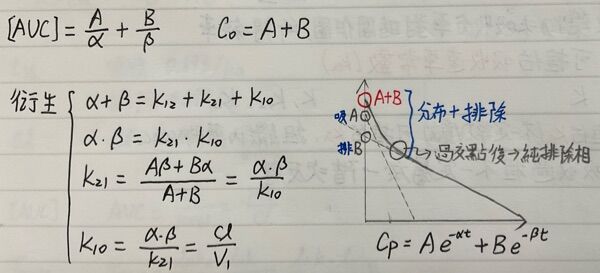 [AUC] = A/α + B/β  C₀ = A+B
衍生 { α+β = K₁₂ + K₂₁ + K₁₀
α·β = K₂₁·K₁₀
K₂₁ = (Aβ+Bα)/(A+B) = (α·β)/K₁₀
K₁₀ = (α·β)/K₂₁ = Cl/V₁
A+B
A
排B
} 分布+排除
→過交點後→純排除相
Cp = Ae^-αt + Be^-βt